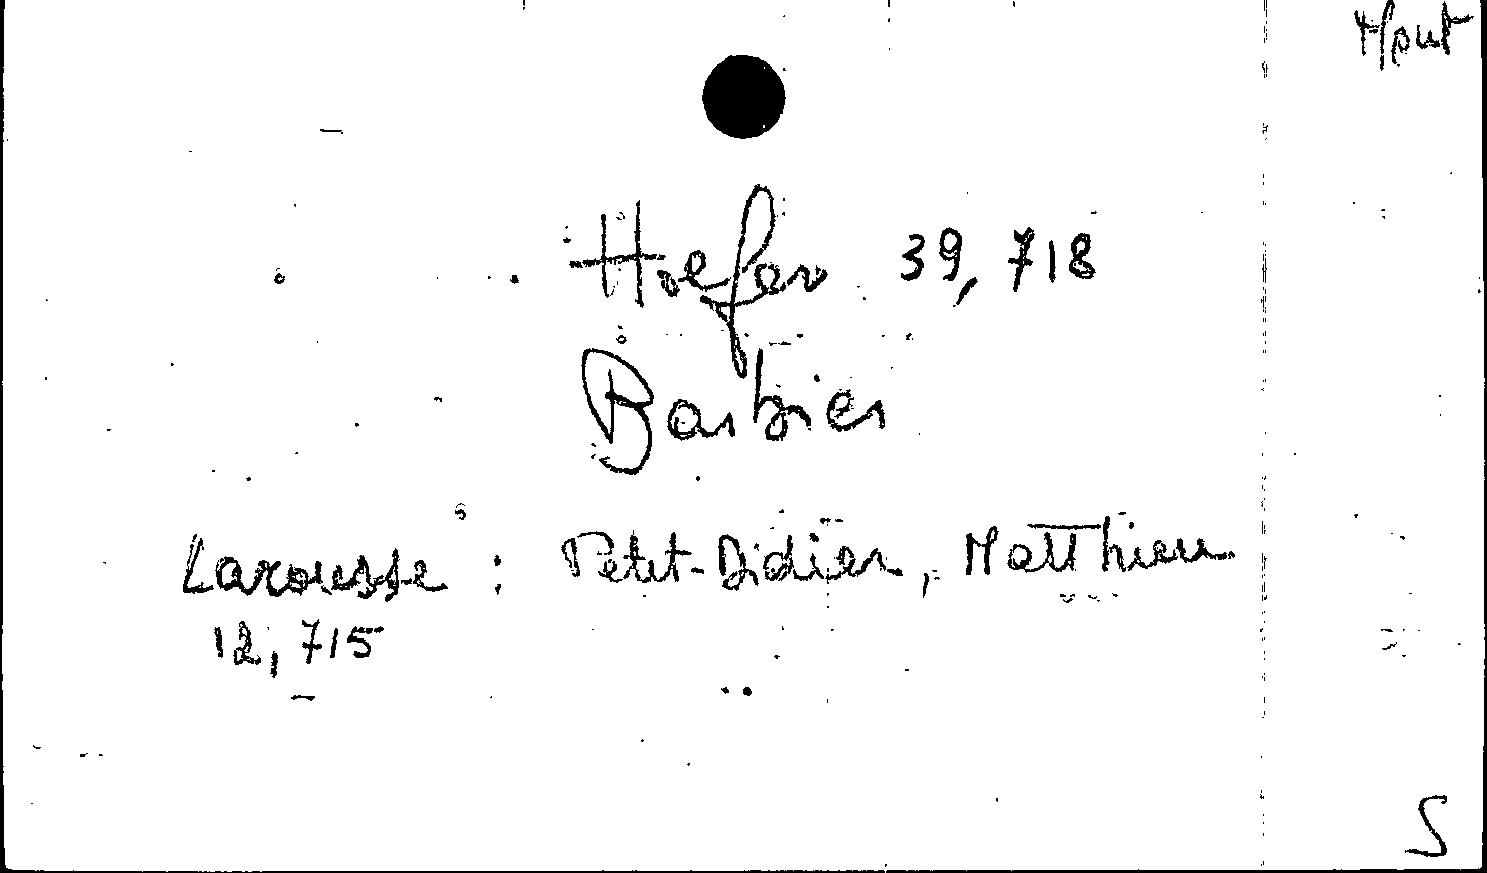 Mont
Hoefer 39, 718
Barbier
Larousse : Petit-Didier, Matthieu
12, 715
S